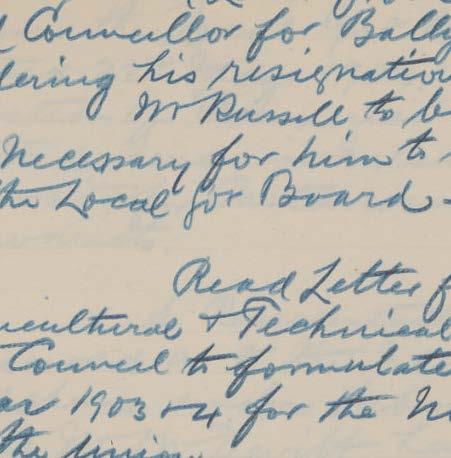 Councillor for Bally
dering his resignation
Mr Russell to b
necessary for him to
the Local Gov Board -
Read Letter f
icultural & Technical
Council to formulate
ar 1903 & 4 for the
the Union